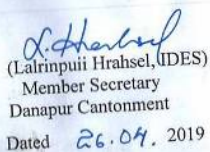 (Lalrinpuii Hrahsel, IDES)
Member Secretary
Danapur Cantonment
Dated 26.04. 2019